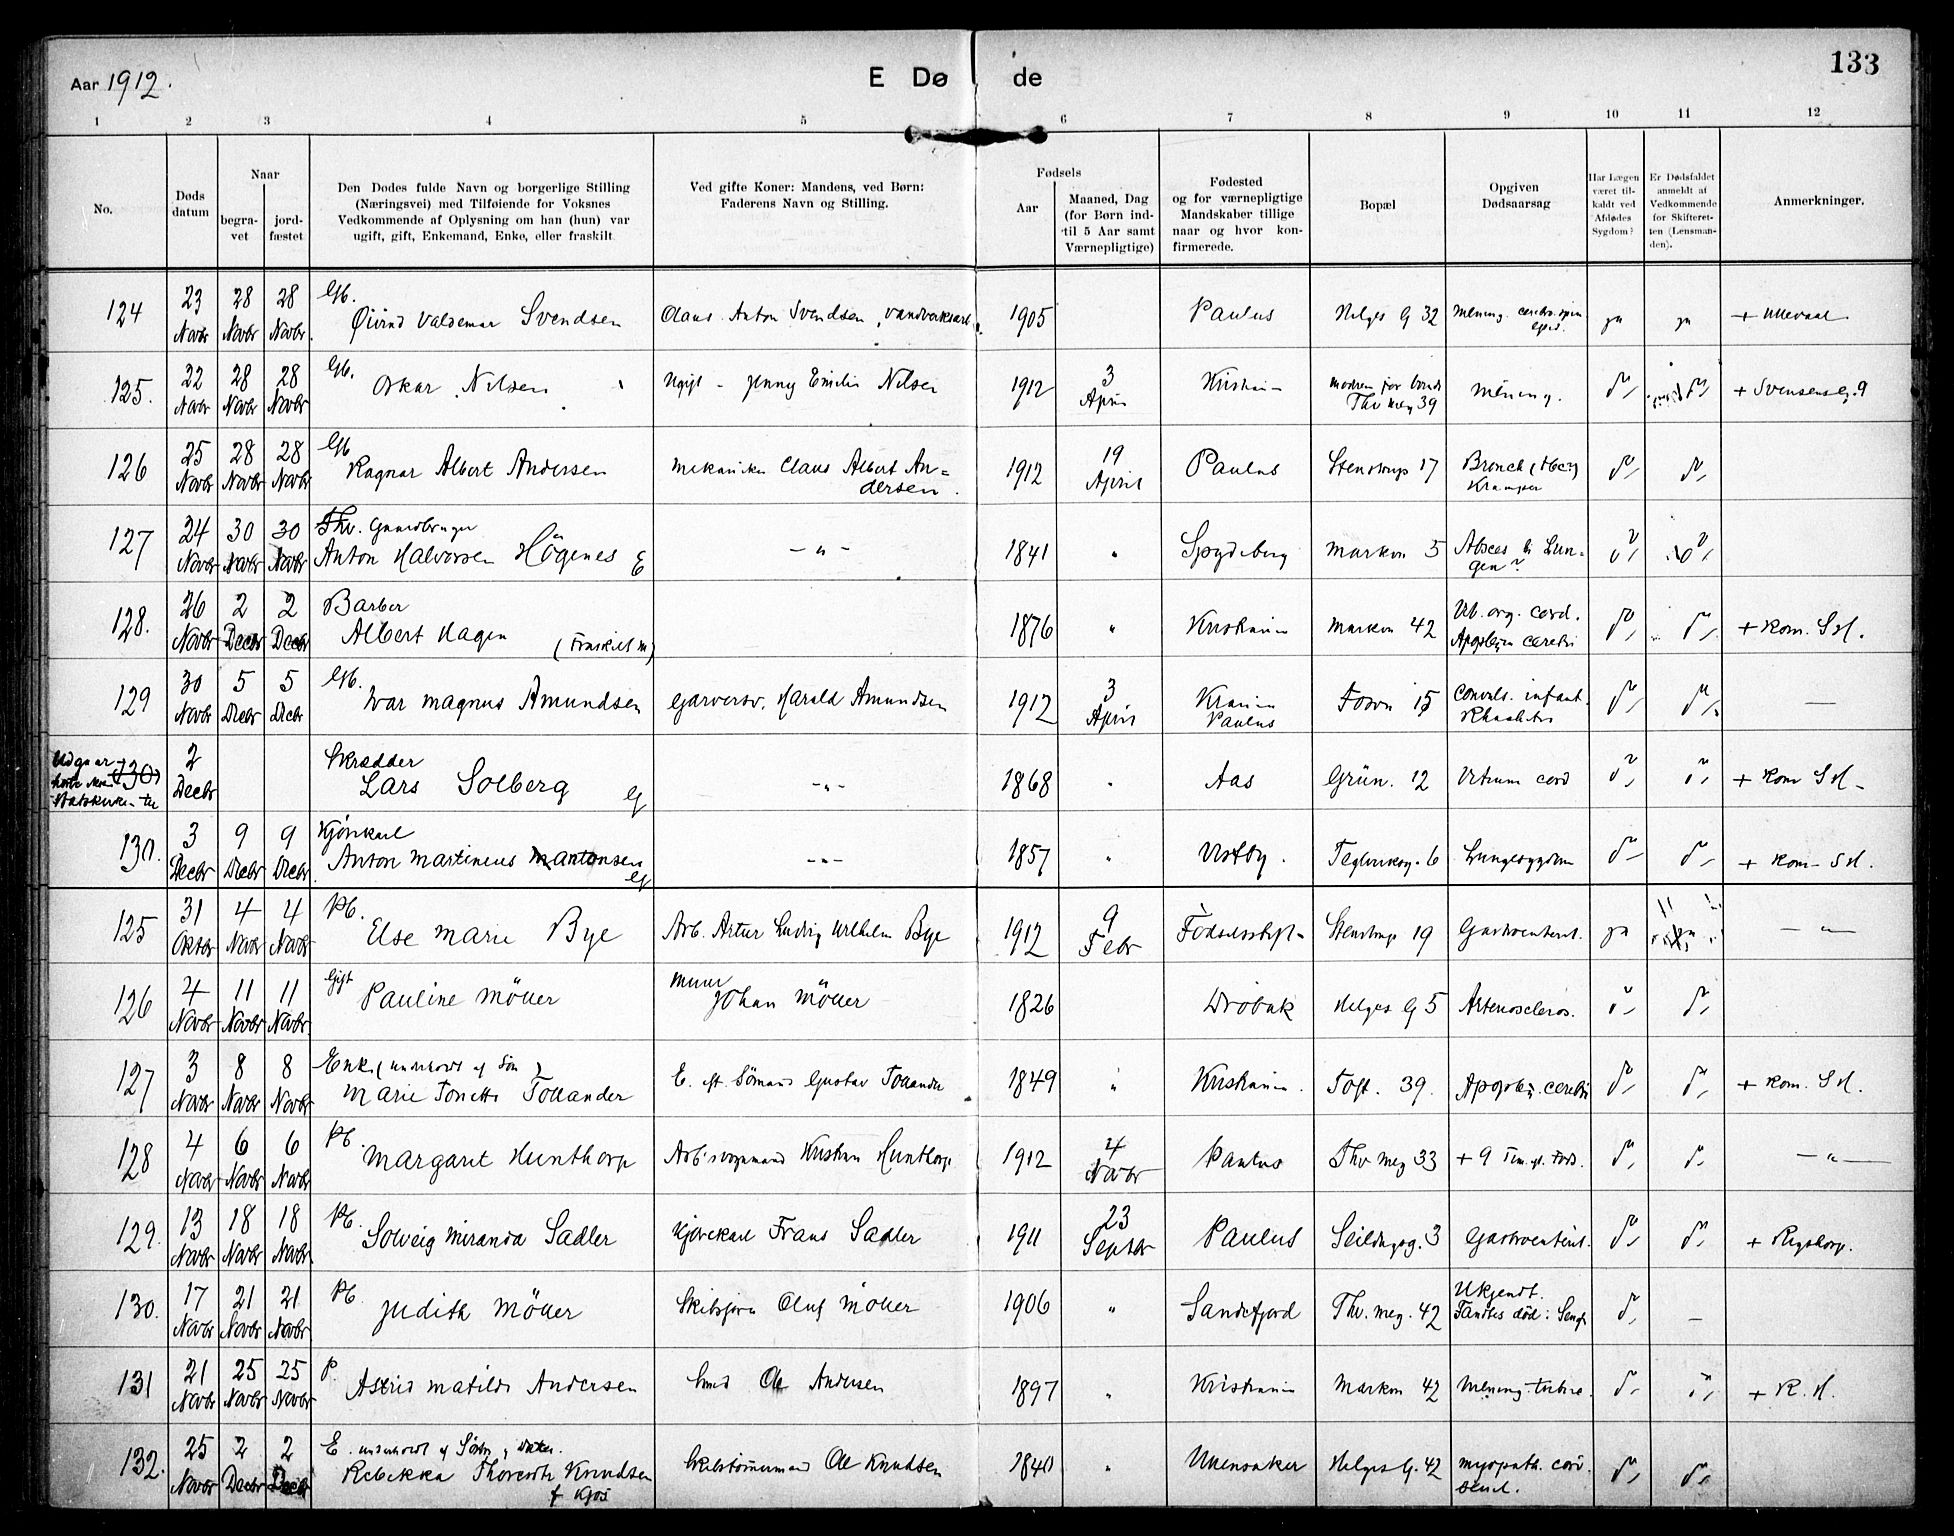 Aar 1912.
E Døde
133
1 2 3 4 5 6 7 8 9 10 11 12
No.
Døds datum
Naar
begra-vet
jord-fæstet
Den Dødes fulde Navn og borgerlige Stilling
(Næringsvei) med Tilføiende for Voksnes
Vedkommende af Oplysning om han (hun) var
ugift, gift, Enkemand, Enke, eller fraskilt
Ved gifte Koner: Mandens, ved Børn:
Faderens Navn og Stilling.
Fødsels
Aar
Maaned, Dag
(for Børn ind-
til 5 Aar samt
Værnepligtige)
Fødested
og for værnepligtige
Mandskaber tillige
naar og hvor kon-
firmerede.
Bopæl
Opgiven
Dødsaarsag
Har Lægen
været til-
kaldt ved
Afdødes
Sygdom?
Er Dødsfaldet
anmeldt af
Vedkommende
for Skifteret-
ten (Lensman-
den).
Anmerkninger.
124 23 Novbr 28 Novbr 28 Novbr. Gb. Øivind Valdemar Svendsen Olaus Anton Svendsen, 1905 Paulus Helges G 32 Mening. cerebro spin epid. ja ja + Ullevaal
125. 22 Novbr 28 Novbr 28 Novbr Gb. Oskar Nilsen Ugift - Jenny Emilie Nilsen 1912 3 April Kristiania Thv meg 39 Mening. do, do, + Svensensg. 9
126 25 Novbr 28 Novbr 28 Novbr Gb Ragnar Albert Andersen Mekaniker Claus Albert An=dersen. 1912 19 April Paulus Stenstrups 17 Bronch Kramper do, do,
127 24 Novbr 30 Novbr 30 Novbr Thv. Gaardbruger Anton Halvorsen Högenes E - " - 1841 " Spydeberg Markvn 5 Absces i Lun=gen? do, do,
128. 26 Novbr 2 Decbr 2 Decbr Barber Albert Hagen (Fraskilt M) 1876 " Kristiania Markvn 42 Vit. org. cord. Apoplexia cerebri do, do, + Kom. S H.
129 30 Novbr 5 Decbr 5 Decbr Gb. Ivar Magnus Amundsen Garversv. Harald Amundsen 1912 3 April Krania Paulus Fossvn 15 Convuls. infant. Rhachitis do, do, —
Udgaar (130) 2 Decbr Skrædder Lars Solberg G - " - 1868 " Aas Grün. 12 Vitium cord do, do, + Kom S H -
130. 3 Decbr 9 Decbr 9 Decbr. Kjörekarl Anton Martineus Mantonsen G - " - 1857 " Vestby. Teglverksg. 6 Lungesygdom do, do, + Kom - S H.
125 31 Oktbr 4 Novbr 4 Novbr Pb. Else Marie Bye Arb. Artur Ludvig Wilhelm Bye 1912 9 Febr Födselsstift - Stenstrups 19 Gastroenterit. ja ja — " —
126 4 Novbr 11 Novbr 11 Novbr. Gift Pauline Möller Murer Johan Möller 1826 Dröbak Helges G 5 Arterioscleros. do, do,
127 3 Novbr 8 Novbr 8 Novbr Enke (underholdt af Sön) Marie Tonette Tollander E. eft. Sömand Gustav Tollander 1849 " Kristiania. Toft. 39. Apoplexia cerebri do, do, + Kom. S H.
128 4 Novbr 6 Novbr 6 Novbr Pb. Margaret Hunthorp Kristian Hunthorp 1912 4 Novbr Paulus Thv meg 33 + 9 Tim. do, do, — " —
129. 13 Novbr 18 Novbr 18 Novbr Pb. Solveig Miranda Sadler Kjörekarl Frans Sadler 1911 23 Septbr Paulus Seildugsg. 3 Gastroenterit. do, do, + Rigshosp.
130. 17 Novbr 21 Novbr 21 Novbr Pb. Judith Möller Olaf Möller 1906 " Sandefjord Thv. meg. 42 Ukjendt. Fandtes död i Seng do, —
131 21 Novbr 25 Novbr 25 Novbr P. Astrid Matilde Andersen Smed Ole Andersen 1897 " Kristiania Markvn 42 Mening. tuberc. do, do, + R. H.
132. 25 Novbr 2 Decbr 2 Decbr E. underholdt af Sön og Datter. Rebekka Thorendte Knudsen f Kjos Skibstömmermand Ole Knudsen 1840 " Ullensaker Helges G. 42 myopath. cord. senil. do, do,